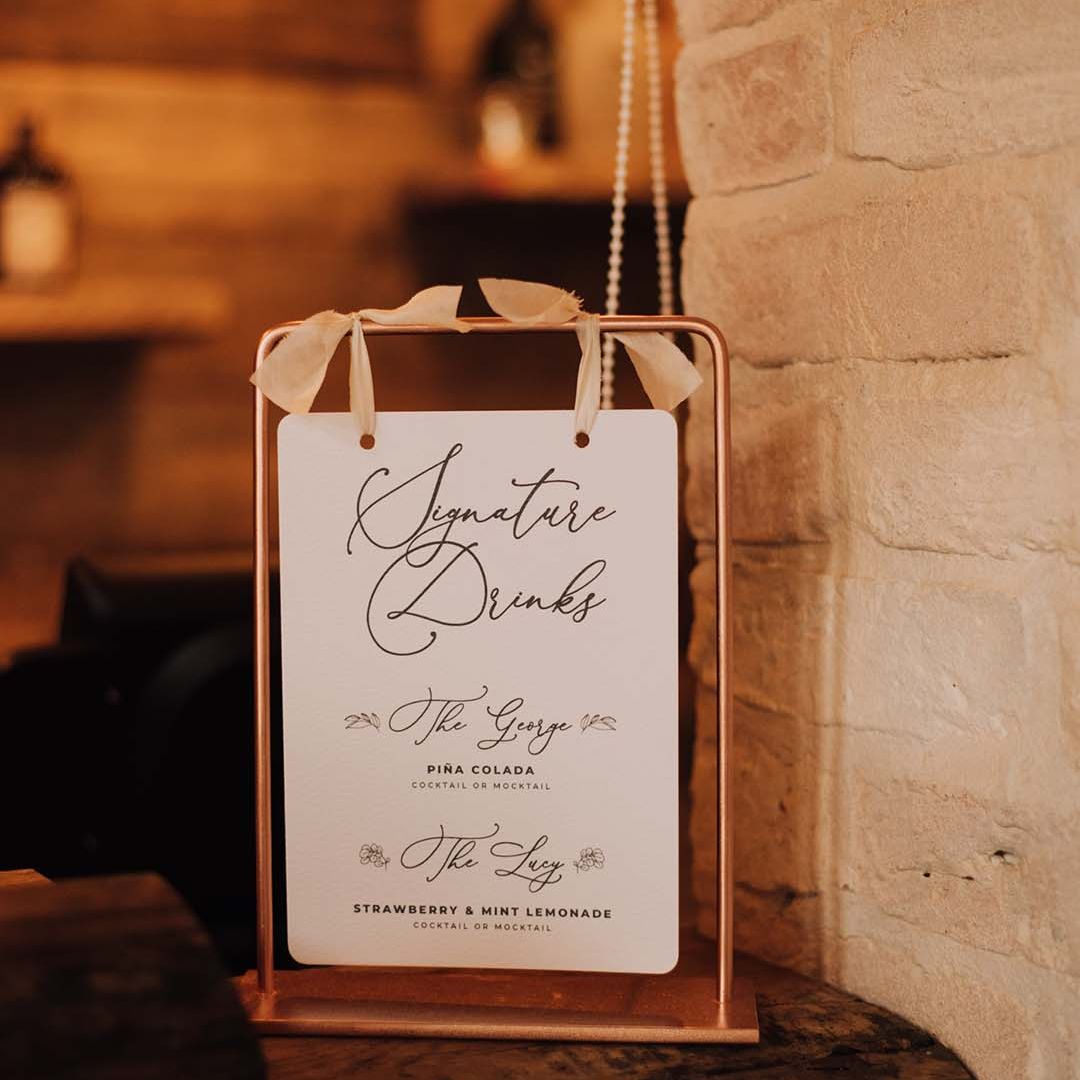 Signature
Drinks
The George
PIÑA COLADA
COCKTAIL OR MOCKTAIL
The Lucy
STRAWBERRY & MINT LEMONADE
COCKTAIL OR MOCKTAIL